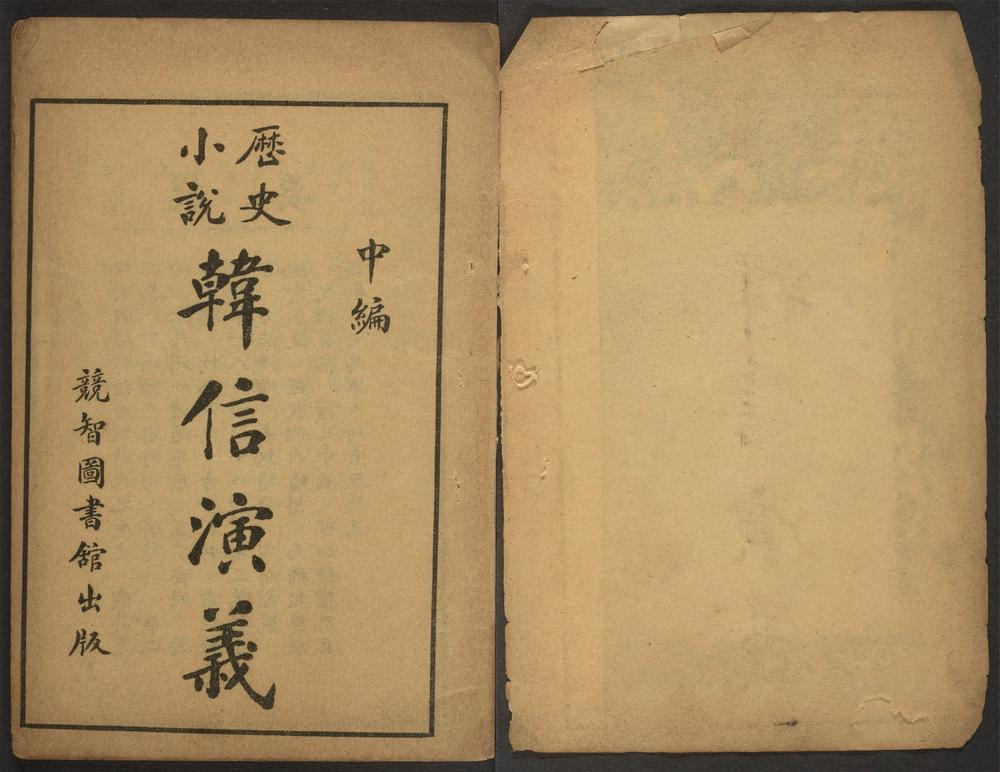 中編
歷史
小說
韓信演義
競智圖書館出版